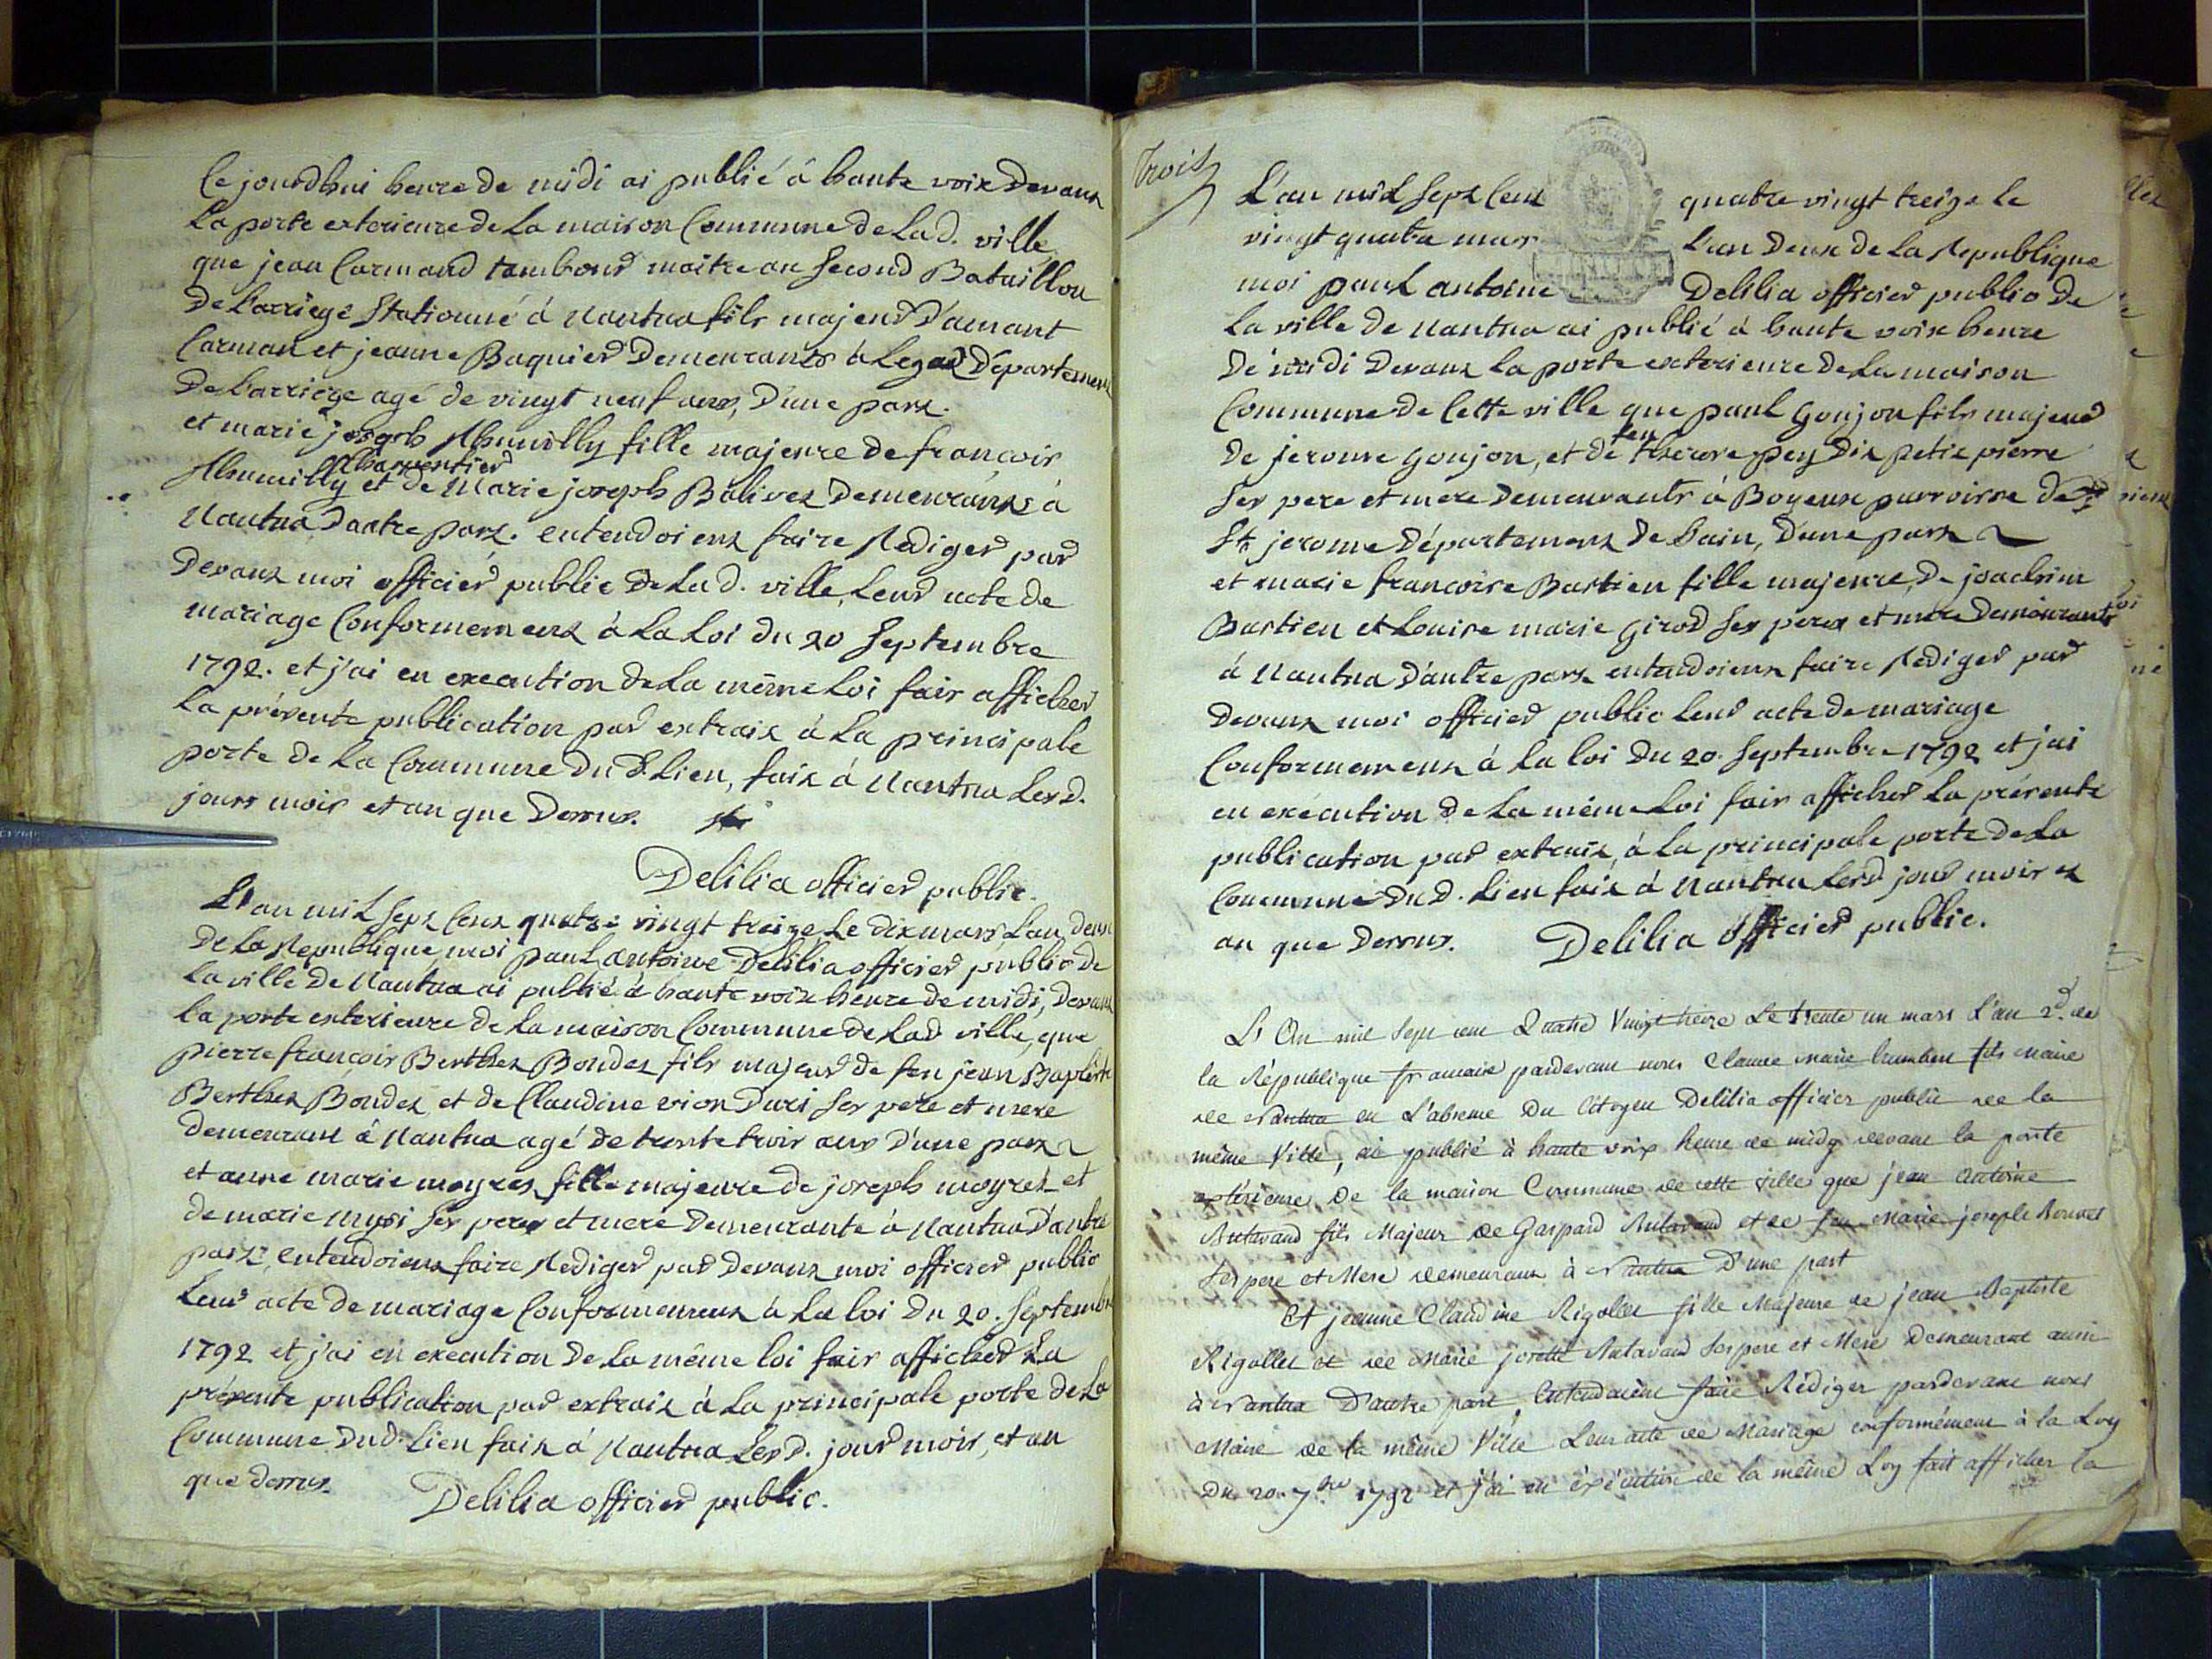 Ce jourdhui heure de midi ai publié á haute voix devant
La porte exterieure de La maison Commune de Lad. ville,
que jean Carmand tambour maitre au second Bataillon
de L'arriège Stationné á Nantua fils majeur d'amant
Carman et jeanne Baquier demeurants à Legad Département
de L'arriege agé de vingt neuf ans, d'une part.
et marie joseph Humilly fille majeure de francois
Humilly charpentier et de Marie joseph Balivet demeurants à
Nantua d'autre part. entendoient faire Rediger par
devant moi officier public de Lad. ville, Leur acte de
mariage Conformement à La Loi du 20 Septembre
1792. et j'ai en execution de La même Loi fait afficher
La présente publication par extrait á La principale
porte de La Commune dud. Lieu, fait á Nantua Lesd.
jours mois et an que dessus.
Delilia officier public.
L'an mil sept Cent quatre vingt treize Le dix mars L'an deux
de La Republique, moi paul antoine Delilia officier public de
La ville de Nantua ai publié á haute voix heure de midi, devant
La porte exterieure de La maison Commune de Lad ville, que
pierre françois Berthet Bondet fils majeur de feu jean Baptiste
Berthet Bondet et de Claudine vion duri ses pere et mere
demeurant á Nantua agé de trente trois ans d'une part
et anne marie moyret fille majeure de joseph moyret et
de marie ses pere et mere demeurante á Nantua d'autre
part, entendoient faire Rediger par devant moi officier public
Leur acte de mariage Conformement à La loi du 20. Septembre
1792 et j'ai en execution de La même loi fait afficher La
présente publication par extrait á La principale porte de La
Commune dud. Lieu fait á Nantua Lesd. jour mois, et an
que dessus. Delilia officier public.
trois
L'an mil sept Cent quatre vingt treize Le
vingt quatre mars L'an deux de La Republique
moi paul antoine Delilia officier public de
La ville de Nantua ai publié á haute voix heure
de midi devant La porte exterieure de La maison
Commune de Cette ville que paul Goujon fils majeur
de jerome Goujon, et de feu pey dit petit pierre
ses pere et mere demeurants á Boyeux parroisse de
St. jerome Département de Lain, d'une part
et marie francoise Bastien fille majeure, de joachim
Bastien et Louise marie Girod ses pere et mere demeurants
à Nantua d'autre part entendoient faire Rediger par
devant moi officier public leur acte de mariage
Conformement á La loi du 20. Septembre 1792 et j'ai
en exécution de La même Loi fait afficher La présente
publication par extrait, á La principale porte de La
Commune dud. Lieu fait á Nantua Lesd jour mois et
an que dessus. Delilia officier public.
L'An mil sept cent Quatre Vingt treize Le trente un mars L'an 2d. de
la République francaise pardevant nous Claude Marie humbert fils Maire
de Nantua en L'absence du Citoyen Delilia officier public de la
même Ville, ai publié à haute voix heure de midy devant la porte
extérieure de la maison Commune de cette ville que jean Antoine
Antavand fils Majeur de Gaspard Antavand et de feu Marie joseph
ses pere et Mere demeurant à Nantua D'une part
Et jeanne Claudine Rigollet fille Majeure de jean Baptiste
Rigollet et de Marie josette Antavand ses pere et Mere Demeurant aussi
à Nantua D'autre part, Entendaient faire Rédiger pardevant nous
Maire de la même Ville Leur acte de Mariage conformément à la Loy
Du 20. 7bre 1792 et j'ai en éxécution de la même Loy fait afficher la